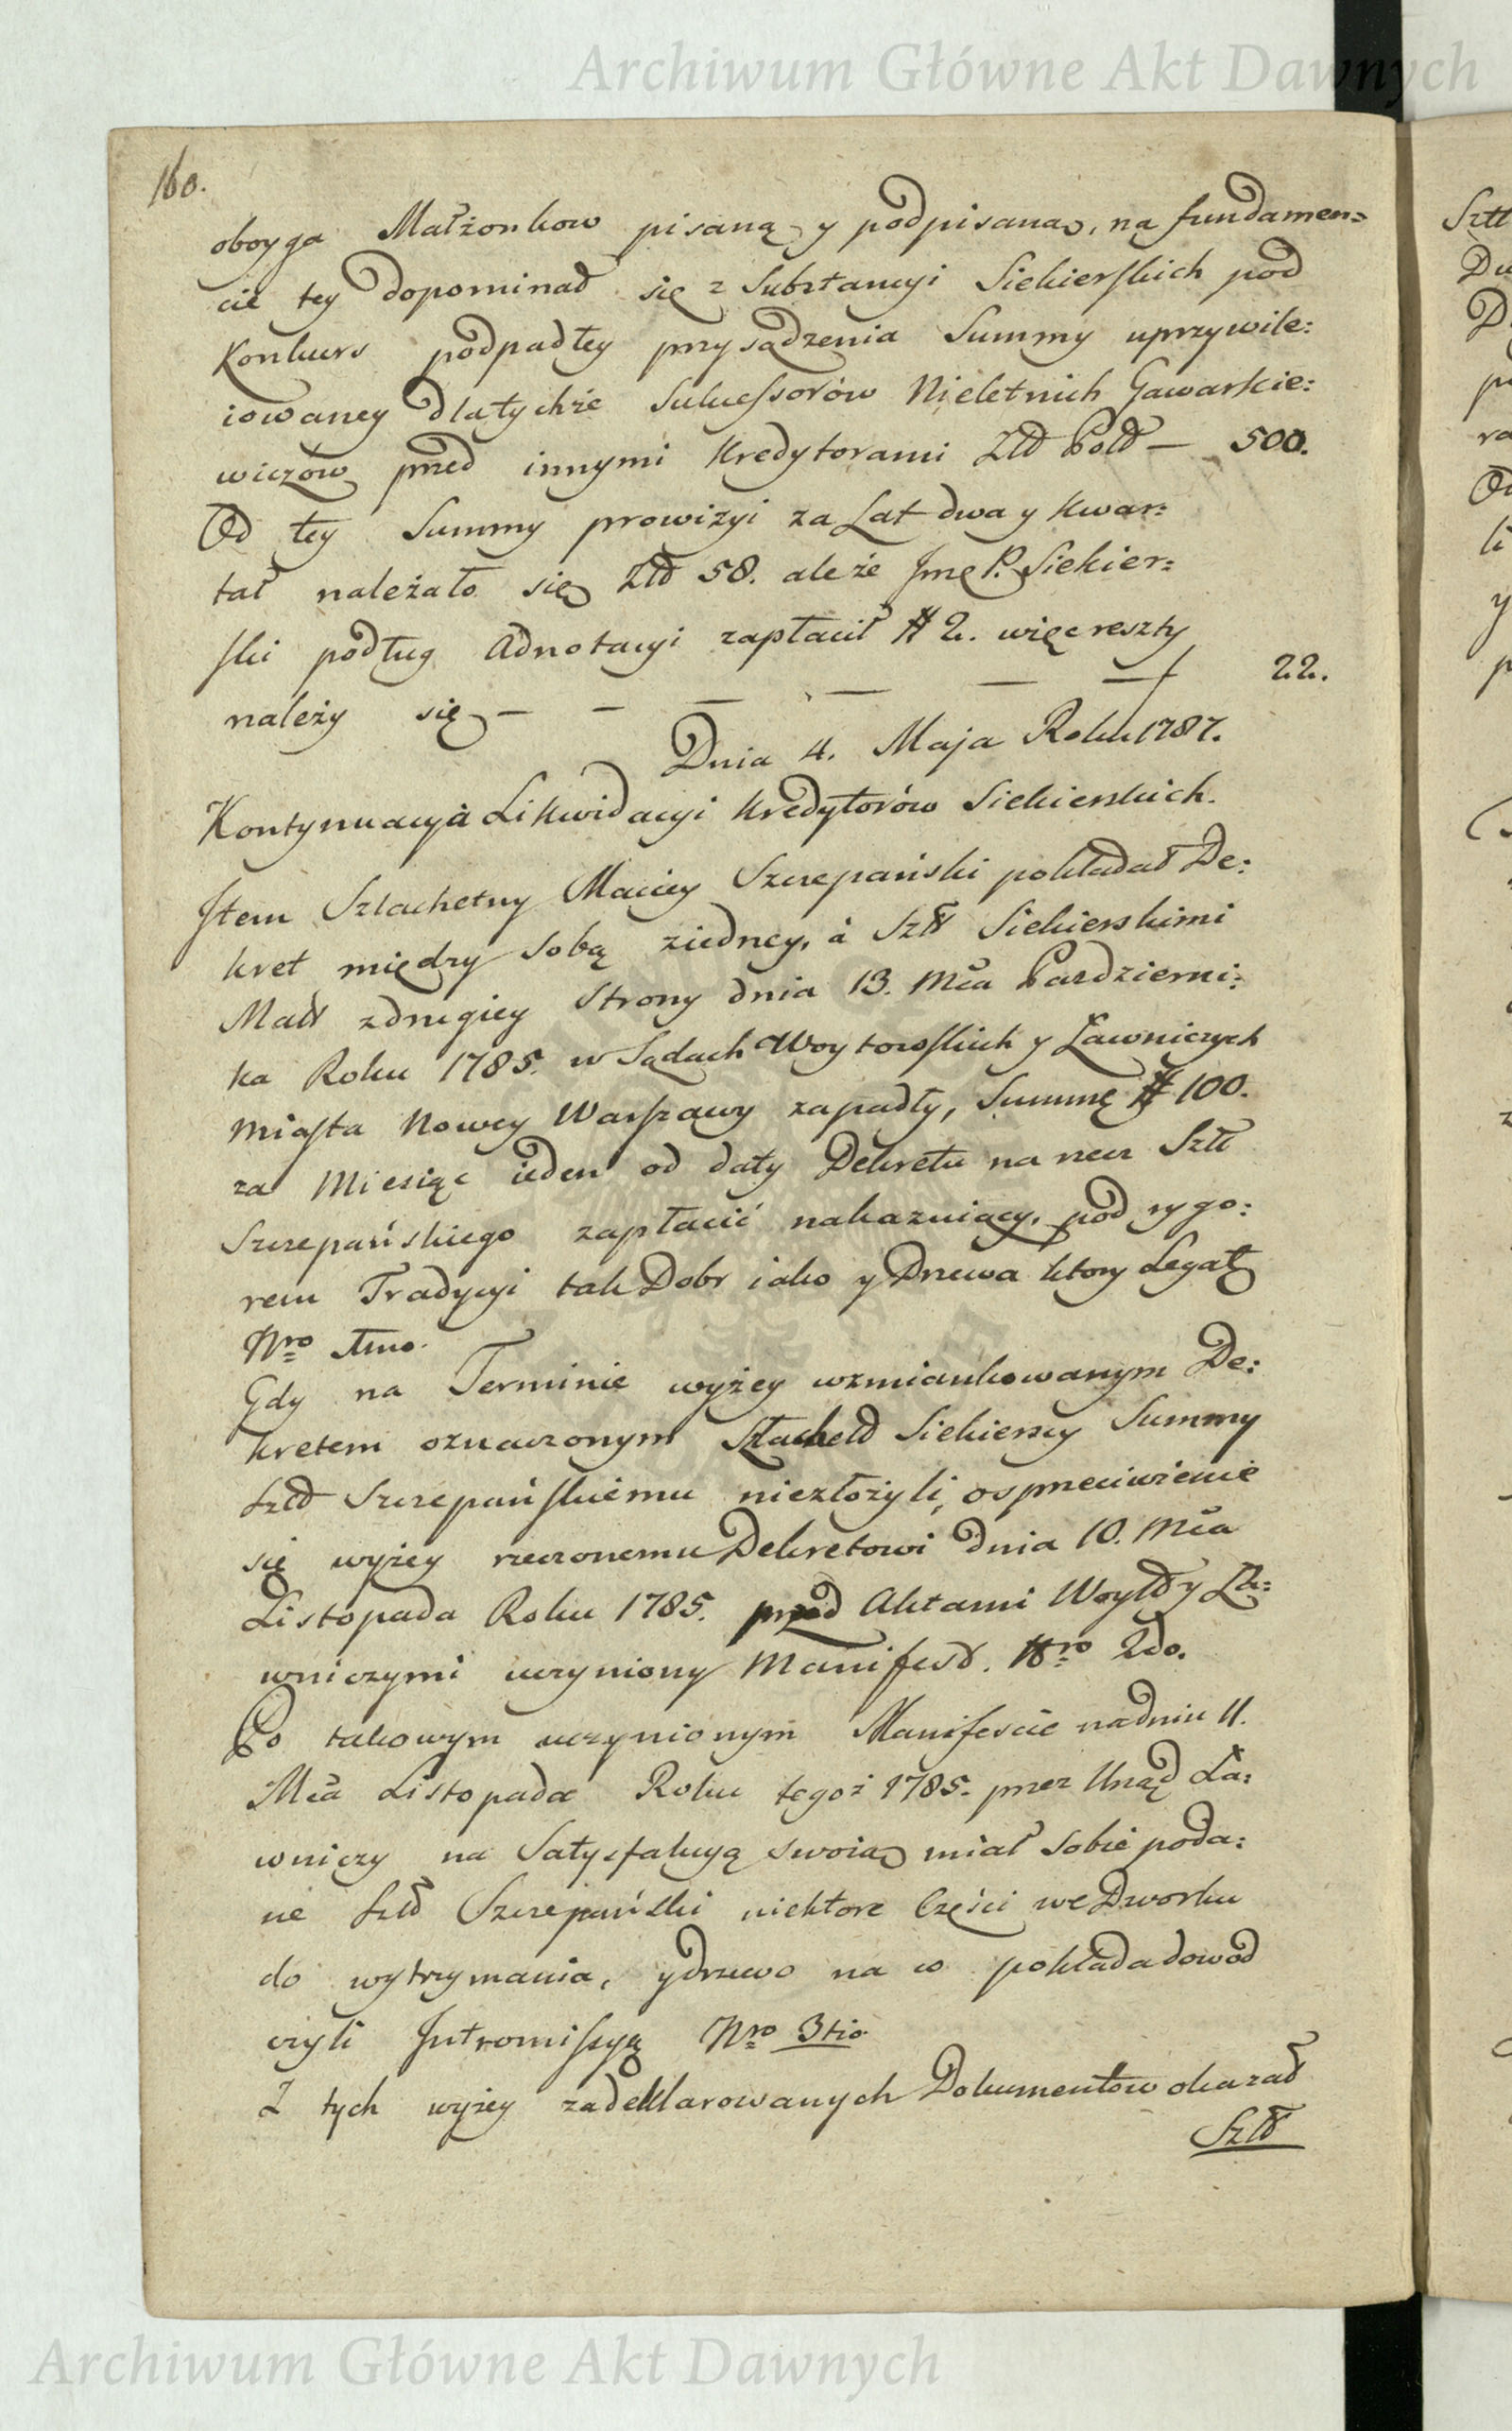 Archiwum Główne Akt Dawnych
160.
oboyga Małżonkow pisaną y podpisaną, na fundamen=
cie tey dopominał się z Substancyi Siekierskich pod
Konkurs podpadłey przysądzenia Summy uprzywile=
iowaney dla tychże Sukcessorów Nieletnich Gawarkie=
wiczów przed innymi Kredytorami Złł Poll — 500.
Od tey Summy prowizyi za Lat dwa y kwar=
tał należało się Złł 58. ale że Jmę P. Siekier=
ski podług Adnotacyi zapłacił # 2. więc reszty
należy się — — — — — — 22.
Dnia 4. Maja Roku 1787.
Kontynuacyà Likwidacyi Kredytorów Siekierskich.
Item Szlachetny Maciey Szczepański pokładał De=
kret między sobą ziedney, à Szll Siekierskimi
Mall zdrugiey Strony dnia 13. Mca Pazdzierni=
ka Roku 1785. w Sądach Woytowskich y Ławniczych
Miasta Nowey Warszawy zapadły, Summę # 100.
za Miesiąc ieden od daty Dekretu na rzecz Szll
Szczepańskiego zapłacić nakazuiący, pod rygo=
rem Tradycyi tak Dobr iako y Drzewa ktory Legat
Nro 1mo.
Gdy na Terminie wyżey wzmiankowanym De=
kretem oznaczonym Szlachell Siekierscy Summy
Szll Szczepańskiemu niezłożyli, o sprzeciwienie
się wyżey rzeczonemu Dekretowi dnia 10. Mca
Listopada Roku 1785. przed Aktami Woytll y Ła=
wniczymi uczyniony Manifest. Nro 2do.
Po takowym uczynionym Manifescie na dniu 11.
Mca Listopada Roku tegoż 1785. przez Urząd Ła=
wniczy na Satysfakcyą swoią miał sobie poda=
ne Szll Szczepański niektore Części we Dworku
do wytrzymania, y drzewo na co pokłada dowod
czyli Intromissyą Nro 3tio.
Z tych wyżey zadeklarowanych Dokumentow okazał
Szll
Archiwum Główne Akt Dawnych